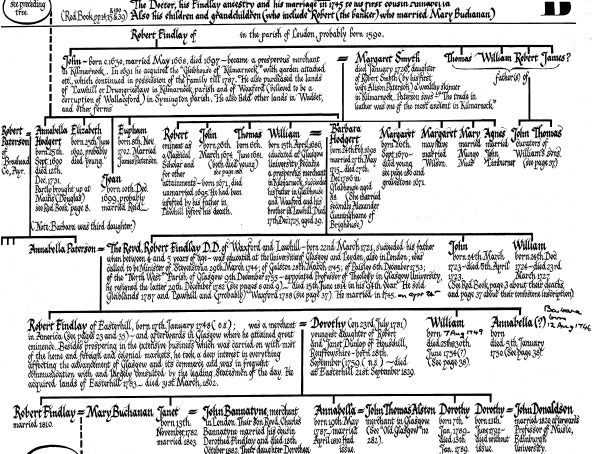 see preceding
tree.
The Doctor, his Findlay ancestry and his marriage in 1745 to his first cousin Annabella
(Red Book, pp 14,15 & 39) Also his children and grandchildren (who include Robert (the banker) who married Mary Buchanan)
D
Robert Findlay of in the parish of Loudon, probably born 1590.
John – born c.1630, married May 1668, died 1697 – became a prosperous merchant
in Kilmarnock. In 1691 he acquired the "Glebehouse of Kilmarnock" with garden attached
etc., which continued in possession of the family till 1787. He also purchased the lands
of "Lawhill or Drumgrislaw in Kilmarnock parish and of Waxford (believed to be a
corruption of Wallaceford) in Symington parish. He also held other lands in Wadset,
and other farms
Margaret Smyth
died January 1725, daughter
of Robert Smyth (by his first
wife Alison Paterson) a wealthy skinner
in Kilmarnock. Paterson says "The trade in
leather was one of the most ancient in Kilmarnock."
Thomas William Robert James?
Father(s) of
Robert
Paterson
of
Braehead
Co. Ayr.
Annabella
Hodgert
born 25th.
Sept. 1690
died 12th.
Dec. 1731.
Partly brought up at
Mauls (Douglas)
see Red Book page 8.
Elizabeth
born 29th. June
1692, probably
died young.
Joan
born 10th. Dec.
1699, probably
married Reid
Eupham
born 8th. Nov.
1702. Married
James Paterson.
(Note: Barbara was third daughter)
Robert
eminent as
a Classical
Scholar and
for other
attainments – born 1671, died
unmarried 1695. He had been
infefted by his father in
Lawhill before his death.
John
born 26th.
March 1674
Thomas
born 6th.
June 1681.
(both died young)
see page 180
William
born 15th. April 1686,
educated at Glasgow
University, became
a prosperous merchant
in Kilmarnock, succeeded
his father in Glebehouse
and Waxford and his
brother in Lawhill. Died
17th Dec. 1725, aged 39.
Barbara
Hodgert
born 24th. Feb. 1698
married 27th. May
1715, died 27th.
Dec. 1786 in
Glebehouse aged
88 (She married
secondly Alexander
Cunninghame of
Brighouse)
Margaret
born 26th.
Sept. 1670 –
died young –
see page 180 and
gravestones 1671.
Margaret
may have
married
Wilson.
Mary
married
Mungo
Muir
Agnes
married
John
Dunbar
John Thomas
(curators of
William's sons.
see page 37)
Annabella Paterson = The Revd. Robert Findlay D.D. of Waxford and Lawhill – born 22nd March 1721, succeeded his father
when between 4 and 5 years of age – was educated at the Universities of Glasgow and Leyden, also in London; was
called to be Minister of Stevenston 29th. March 1744; of Galston 28th. March 1745; of Paisley 6th. December 1753;
of the "North West" Parish of Glasgow 9th. December 1755 – appointed Professor of Theology in Glasgow University,
he resigned the latter 29th. December 1782 (see pages 8 and 9) – died 15th. June 1814 in his 94th. Year. He sold
Gleiblands 1787 and Lawhill and (probably) Waxford 1788 (see page 37). He married in 1745.
John
born 24th. March
1723 – died 5th. April
1773.
William
born 24th. Dec.
1724 – died 23rd.
March 1727.
(See Red Book, page 3 about their deaths,
and page 37 about their tombstone inscription)
Robert Findlay of Easterhill, born 17th. January 1748 (o.s.); was a merchant
in America (see pages 23 and 35) – and afterwards in Glasgow where he attained great
eminence. Besides prospering in the extensive business which was carried on with most
of the home and foreign and colonial markets, he took a deep interest in everything
affecting the advancement of Glasgow and its commerce and was in frequent
communication with and largely consulted by the leading Statesmen of the day. He
acquired lands of Easterhill 1783 – died 31st. March, 1802.
Dorothy (on 23rd. July 1781)
youngest daughter of Robert
and Janet Dunlop of Househill,
Renfrewshire – born 28th.
September 1759 (n.s.) – died
at Easterhill 21st. September 1839.
William
born 7 Aug 1749
died 25th
June 1754(?)
(See page 38)
Annabella (?)
born
died 5th. January
1750 (See page 38)
Barbara
b
12 Aug 1766
Robert Findlay = Mary Buchanan
married 1810.
Janet
born 13th.
November 1782
married 1803.
John Bannatyne, merchant
in London. Their Son, Revd. Charles
Bannatyne married his cousin
Dorothea Findlay and died 15th.
October 1882. Their daughter Dorothea
Annabella = John Thomas Alston
born 19th. May
1787 – married
April 1810 had
issue.
merchant in Glasgow
(See "Old Glasgow" &c
282).
Dorothy
born 17th.
Jan. 1789 –
died 13th.
Jan. 1789.
Dorothy = John Donaldson
born 11th.
June 1792 –
died without
issue.
married 1822 afterwards
Professor of Music,
Edinburgh
University.